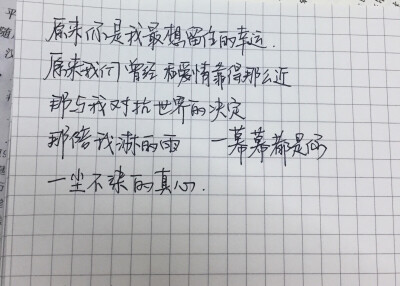 原来你是我最想留住的幸运.
原来我们曾经和爱情靠得那么近
那与我对抗世界的决定
那陪我淋的雨 一幕幕都是你
一尘不染的真心.